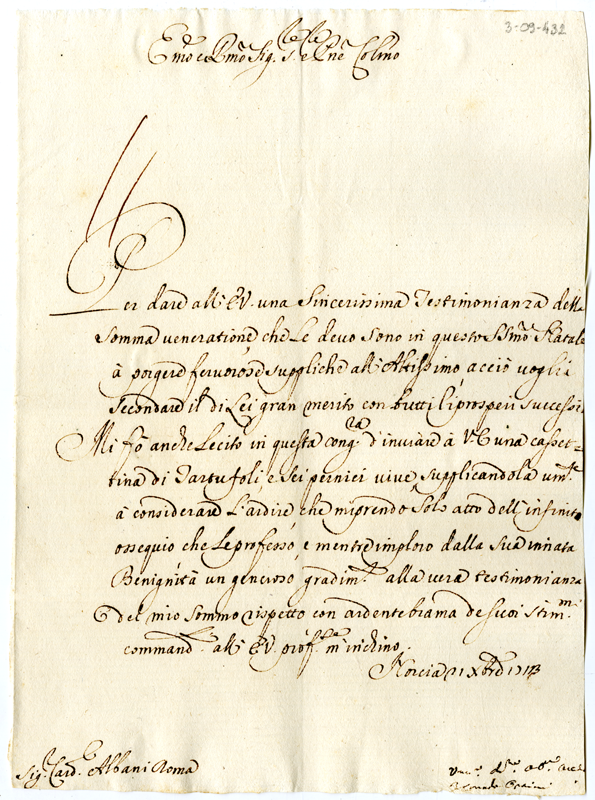 3-09-432
Emo e Rmo Sig.r e Pne Colmo
Per dare all'E.V. una sincerissima Testimonianza della
somma veneratione che Le devo sono in questo SSmo Natale
à porgere fervorose suppliche all'Altissimo, acciò voglia
secondare il di Lei gran merito con tutti li prosperi successi.
Mi fò anche Lecito in questa cong.ra d'inviare à V.E una casset-
tina di Tartufoli, e sei pernici vive, supplicandola um.te
à considerare L'ardire, che mi prendo solo atto dell'infinito
ossequio che Le professo, e mentre imploro dalla sua innata
Benignità un generoso gradim.to alla vera testimonianza
del mio sommo rispetto con ardente brama de suoi stim.mi
command.i all'E.V. prof.te m'inchino.
Norcia 21 Xbre 1713
Sig.r Card. Albani Roma